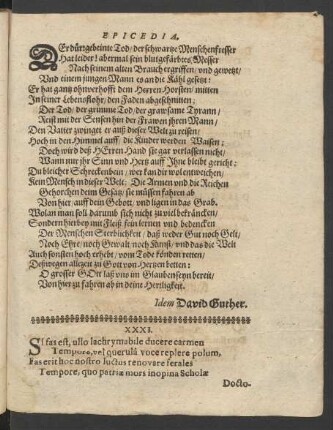 EPICEDIA.
DEr dürrgebeinte Tod/ der schwartze Menschenfresser
Hat leider! abermal sein blutgefärbtes Messer
Nach seinem alten Brauch ergriffen/ und gewetzt/
Und einem jungen Mann es an die Kähl gesetzt:
Er hat gantz ohnverhofft dem Herren Horsten/ mitten
In seiner Lebens flohr/ den Faden abgeschnitten;
Der Tod/ der grimme Tod/ der grawsame Tyrann/
Reist mit der Sensen hin der Frawen ihren Mann/
Den Vatter zwinget er auß dieser Welt zu reisen/
Hoch in den Himmel auff/ die Kinder werden Waisen:
Doch wird deß HErren Hand sie gar verlassen nicht/
Wann nur ihr Sinn und Hertz auff Ihne bleibt gericht:
Du bleicher Schreckenbein/ wer kan dir wol entweichen/
Kein Mensch in dieser Welt; Die Armen und die Reichen
Gehorchen deim Gesätz/ sie müssen fahren ab
Von hier auff dein Gebott/ und ligen in das Grab.
Wolan man soll darumb sich nicht zu viel bekräncken/
Sondern hierbey mit Fleiß fein lernen und bedencken
Der Menschen Sterblichkeit/ daß weder Gut noch Gelt/
Noch Ehre/ noch Gewalt noch Kunst/ und das die Welt
Auch sonsten hoch erhebt/ vom Tode könden retten/
Deßwegen allezeit zu Gott von Hertzen betten:
O grosser GOtt laß uns im Glauben seyn bereit/
Von hier zu fahren ab in deine Herrligkeit.
Idem David Guther.
XXXI.
SI fas est, ullo lachrymabile ducere carmen
Tempore, vel querulâ voce replere polum,
Fas erit hoc nostro luctus renovare ferales
Tempore, quo patriæ mors inopina Scholæ
Docto-